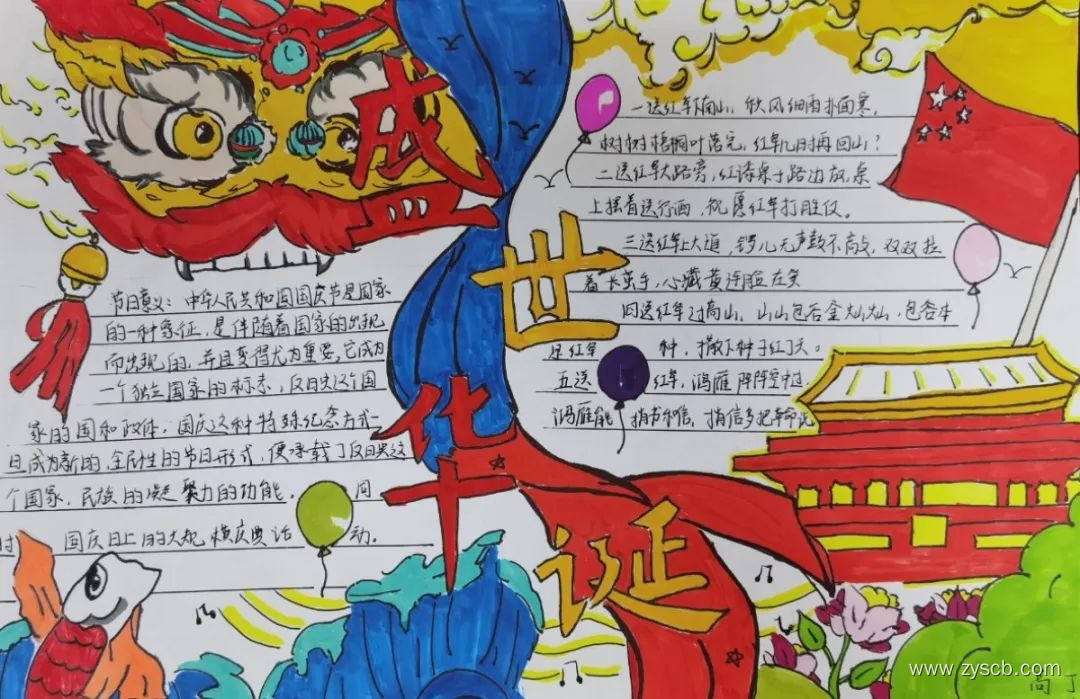 盛世华诞
节日意义:中华人民共和国国庆节是国家
的一种象征,是伴随着国家的出现
而出现的,并且变得尤为重要,它成为
一个独立国家的标志,反映这个国
家的国和政体,国庆这种特殊纪念方式一
旦成为新的,全民性的节日形式,便承载了反映这
个国家、民族的凝聚力的功能。同
时 国庆日上的大规模庆典活动。
一送红军下南山,秋风细雨扑面寒,
树树梧桐叶落完,红军几时再回山?
二送红军大路旁,红漆桌子路边放,桌
上摆着送行酒,祝愿红军打胜仗。
三送红军上大道,锣儿无声鼓不敲,双双拉
着长茧手,心藏黄连脸在笑
四送红军过高山,山山包谷金灿灿,包谷本
是红军种,撒下种子红了天。
五送红军,鸿雁阵阵空中过,
鸿雁能捎书和信,捎信多把革命说
www.zyscb.com